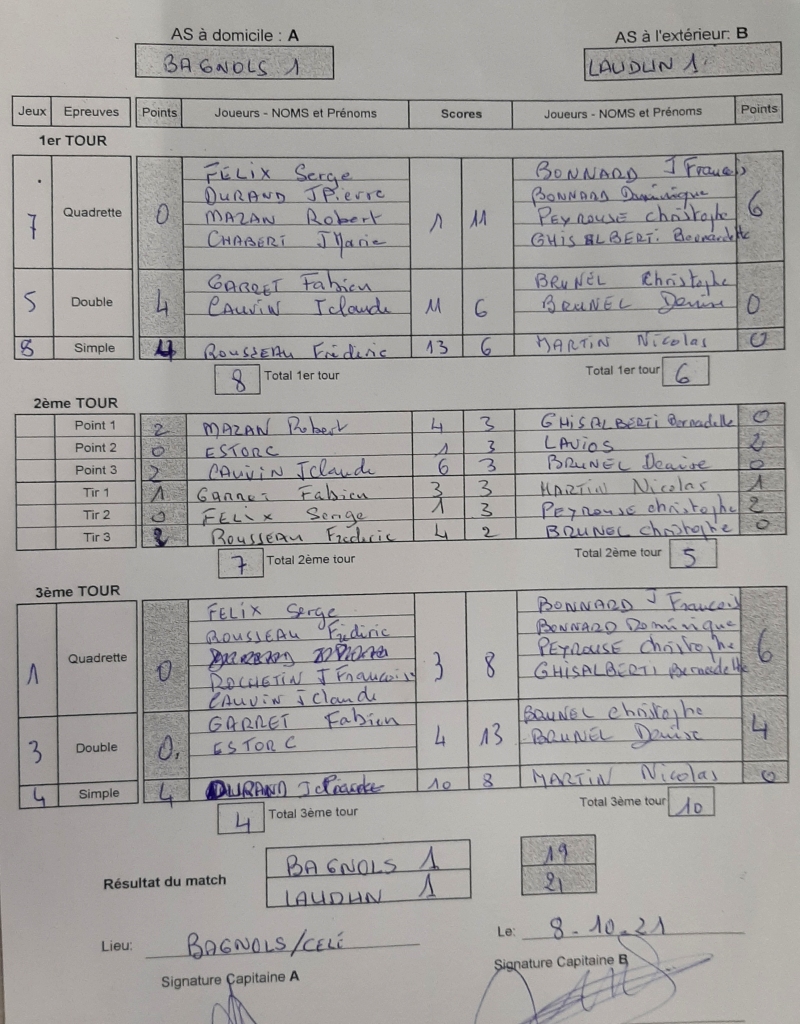 AS à domicile : A AS à l'extérieur: B
BAGNOLS 1 LAUDUN 1
Jeux Epreuves Points Joueurs - NOMS et Prénoms Scores Joueurs - NOMS et Prénoms Points
1er TOUR
FELIX Serge BONNARD J François
DURAND JPierre BONNARD Dominique
7 Quadrette 0 MAZAN Robert 1 11 PEYROUSE christophe 6
CHABERT JMarie GHISALBERTI Bernardette
GARRET Fabien BRUNEL Christophe
5 Double 4 CAUVIN Jclaude 11 6 BRUNEL Denise 0
8 Simple 4 ROUSSEAU Fréderic 13 6 MARTIN Nicolas 0
8 Total 1er tour Total 1er tour 6
2ème TOUR
Point 1 2 MAZAN Robert 4 3 GHISALBERTI Bernadette 0
Point 2 0 ESTORC 1 3 LAVIOS 2
Point 3 2 CAUVIN Jclaude 6 3 BRUNEL Denise 0
Tir 1 1 GARRET Fabien 3 3 MARTIN Nicolas 1
Tir 2 0 FELIX Serge 1 3 PEYROUSE christophe 2
Tir 3 2 ROUSSEAU Frederic 4 2 BRUNEL christophe 0
7 Total 2ème tour Total 2ème tour 5
3ème TOUR
FELIX Serge BONNARD J François
ROUSSEAU Fréderic BONNARD Dominique
1 Quadrette 0 3 8 PEYROUSE Christophe 6
ROCHETIN J Francois GHISALBERTI Bernadette
CAUVIN Jclaude
GARRET Fabien BRUNEL christophe
3 Double 0 ESTORC 4 13 BRUNEL Denise 4
4 Simple 4 DURAND 10 8 MARTIN Nicolas 0
4 Total 3ème tour Total 3ème tour 10
Résultat du match BAGNOLS 1 19
LAUDUN 1 21
Lieu: BAGNOLS/CEZE Le: 8-10-21
Signature Capitaine A Signature Capitaine B